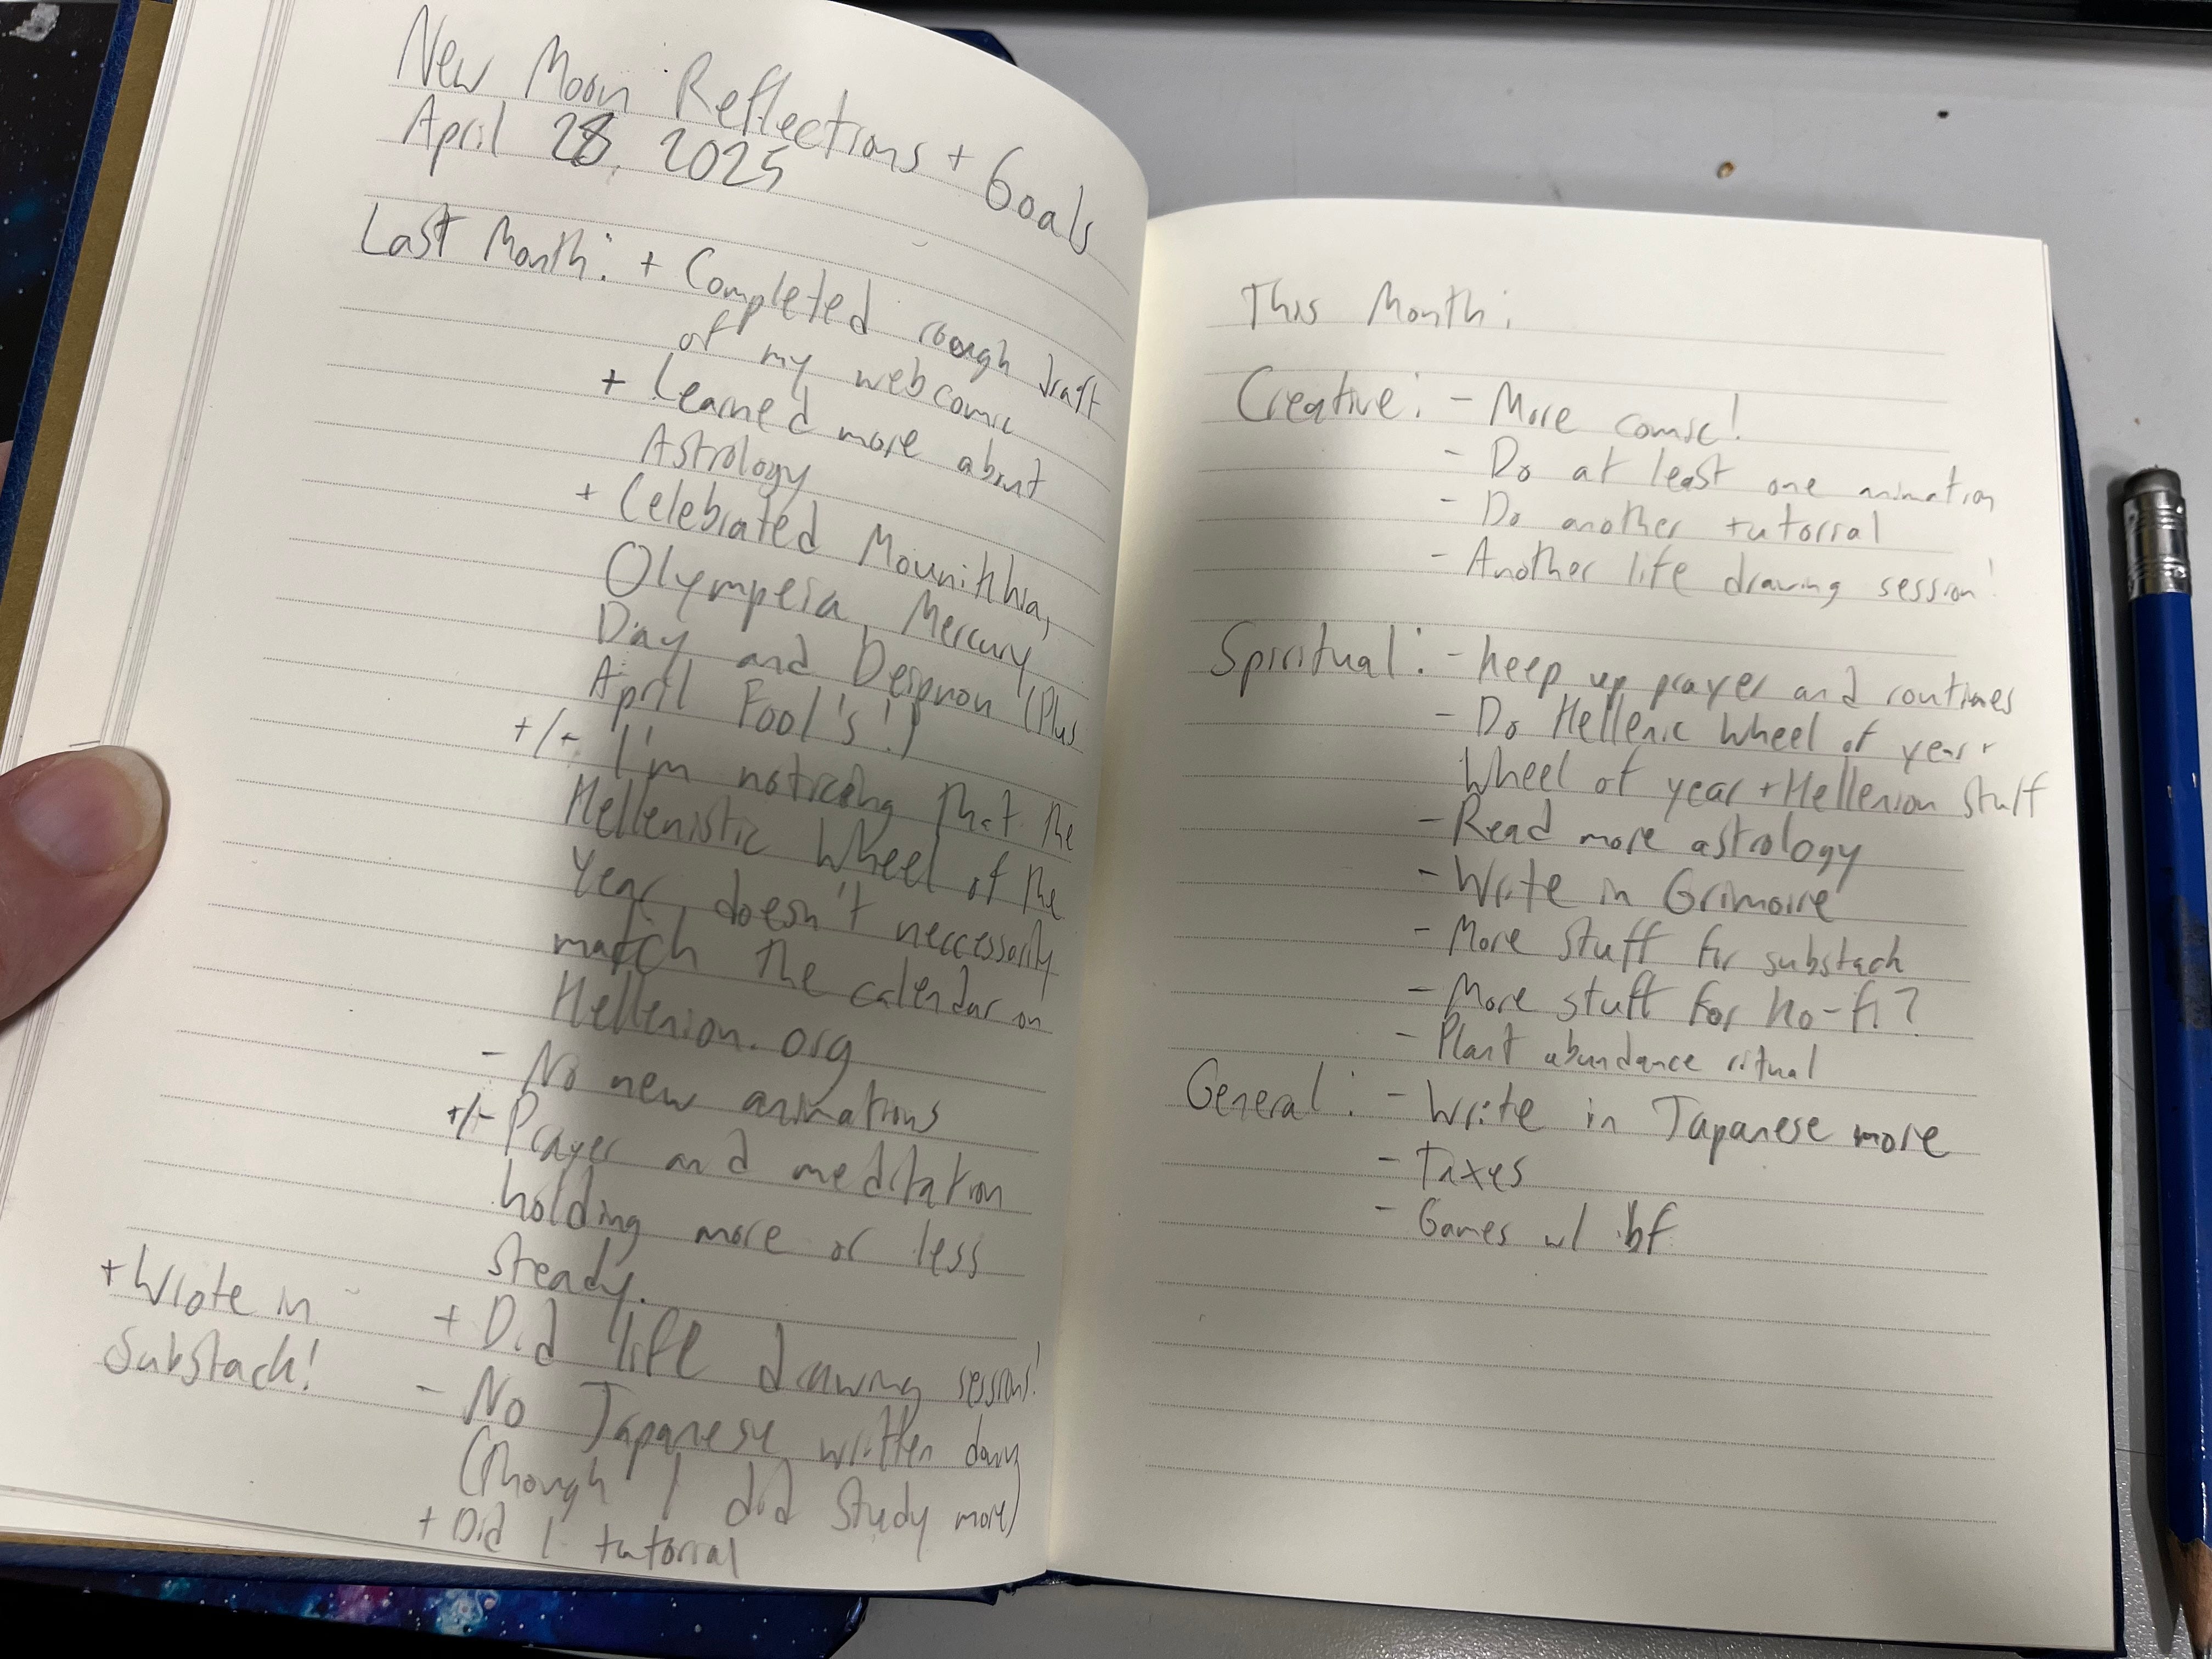 New Moon Reflections + Goals
April 28, 2025
Last Month: + Completed rough draft
of my webcomic
+ Learned more about
Astrology
+ Celebrated Mounikhia,
Olympeia, Mercury
Day and Deipnon (Plus
April Fool's!)
+/- I'm noticing that the
Hellenistic Wheel of the
Year doesn't neccessarily
match the calendar on
Hellenion.org
- No new animations
+/- Prayer and meditation
holding more or less
steady.
+ Did life drawing sessions!
- No Japanese written down
(Though I did study more)
+ Did 1 tutorial
+ Wrote in
Substack!
This Month:
Creative: - More comic!
- Do at least one animation
- Do another tutorial
- Another life drawing session!
Spiritual: - Keep up prayer and routines
- Do Hellenic Wheel of year
Wheel of year + Hellenion stuff
- Read more astrology
- Write in Grimoire
- More stuff for substack
- More stuff for Ko-fi?
- Plant abundance ritual
General: - Write in Japanese more
- Taxes
- Games w/ bf